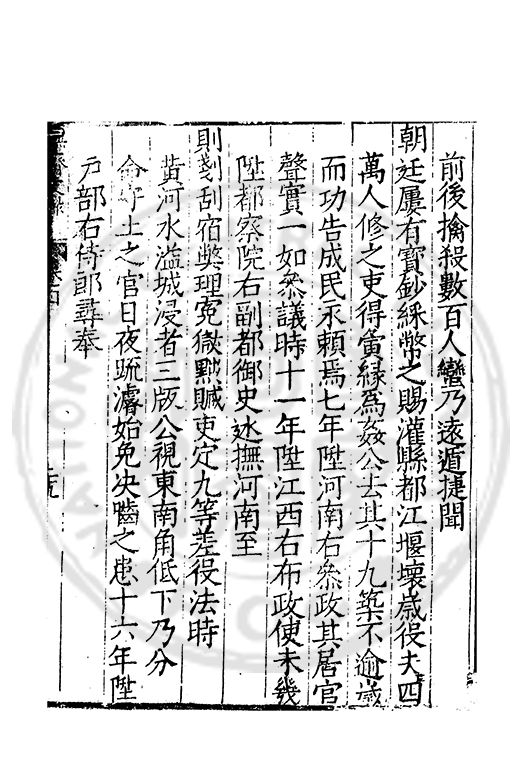 前後擒殺數百人蠻乃遠遁捷聞
朝廷屢有寳鈔綵幣之賜灌縣都江堰壞歳役夫四
萬人修之吏得夤縁為姦公去其十九築不逾歳
而功告成民永頼焉七年陞河南右叅政其居官
聲實一如叅議時十一年陞江西右布政使未幾
陞都察院右副都御史廵撫河南至
則剗刮宿獘理寃獄黜贓吏定九等差役法時
黄河水溢城浸者三版公視東南角低下乃分
命守土之官日夜疏濬始免决嚙之患十六年陞
戸部右侍郎尋奉